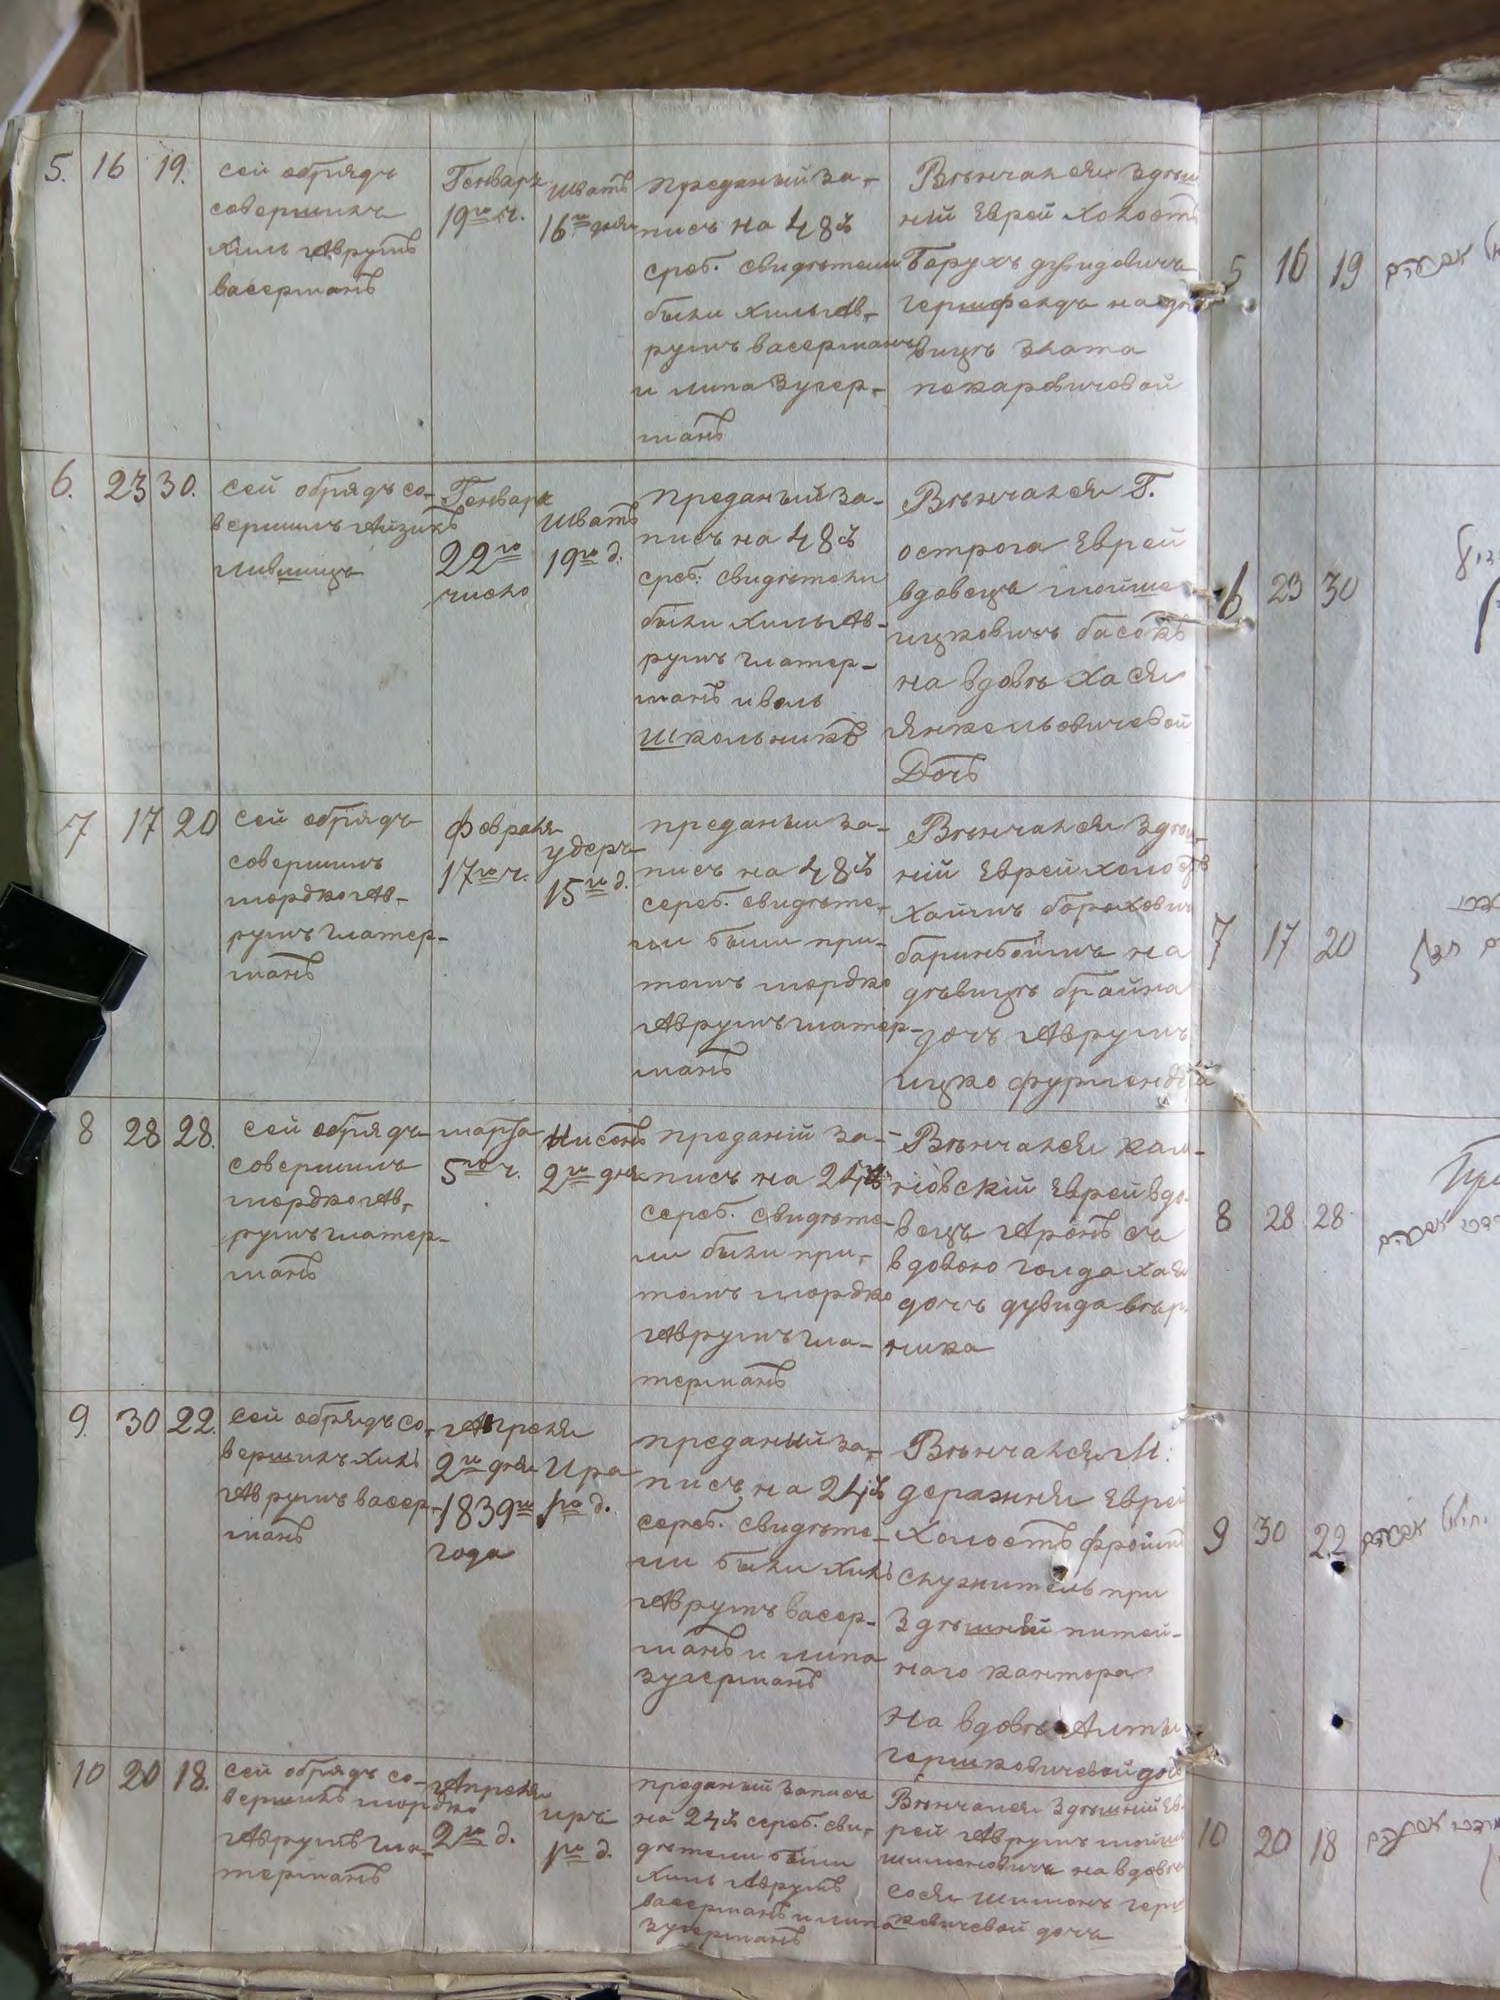 5. 16 19.
сей обрядъ
совершилъ
Хиль Аврумъ
васерманъ
Генваря
19го ч.
Шватъ
16го дня
преданый за-
писъ на 48 ц
среб. свидѣтели
были Хиль Ав-
румъ васерманъ
и липа Зугер-
манъ
Вѣнчался Здѣш
ній Еврей Холостъ
Борухъ дувидовичъ
гершфелдъ на дѣ
вицѣ Злота
пекаровичовой
6. 23 30.
сей обрядъ со-
вершилъ Айзикъ
лившицъ
Генваря
22го
число
Шватъ
19го д.
преданый за-
писъ на 48 ц
среб. свидѣтели
были Хиль Ав-
румъ глотер-
манъ и воль
Школьникъ
Вѣнчался Г.
острога Еврей
вдовецъ мойше
ицковичъ басокъ
на вдовѣ Хася
Янкельовичевой
Дочъ
7 17 20
сей обрядъ
совершилъ
мордко Ав-
румъ глотер-
манъ
февраля
17го ч.
удеръ
15го д.
преданый за-
писъ на 48 ц
сереб. свидѣте-
ли были при-
томъ мордко
Аврумъ глотер-
манъ
Вѣнчался Здѣш
ній Еврей холостъ
Хаимъ борохович
баринбоймъ на
дѣвицѣ брайна
дочъ Аврумъ
ицко фурмендѣй
8 28 28.
сей обрядъ
совершилъ
мордко Ав-
румъ глотер-
манъ
марта
5го ч.
Нисонъ
2го дня
преданій за-
писъ на 24 ц
сереб. свидѣте-
ли были при-
томъ мордко
Аврумъ гло-
терманъ
Вѣнчался кам-
ніовскій Еврей вдо
вецъ Аронъ съ
вдовою голда хая
дочъ дувида вѣр
ника
9. 30 22.
сей обрядъ со-
вершилъ Хиль
Аврумъ васер-
манъ
Апреля
2го дня
1839го
года
Ира
1го д.
преданый за-
писъ на 24 ц
сереб. свидѣте-
ли были Хиль
Аврумъ васер-
манъ и липа
Зугерманъ
Вѣнчался М:
деражня Еврей
Холостъ фроимъ
служитель при
Здѣшней питей-
наго кантора
на вдовѣ Алты
гершковичевой доч
10 20 18.
сей обрядъ со-
вершилъ мордко
Аврумъ гло-
терманъ
Апреля
2го д.
иръ
1го д.
преданый записъ
на 24 ц сереб. сви-
дѣтели были
Хиль Аврумъ
васерманъ и липа
Зугерманъ
Вѣнчался Здѣшній Ев-
рей Аврумъ мойше
шимоновичъ на вдовѣ
сося шимонъ герш
ковичевой дочъ
5 16 19
6 23 30
7 17 20
8 28 28
9 30 22
10 20 18